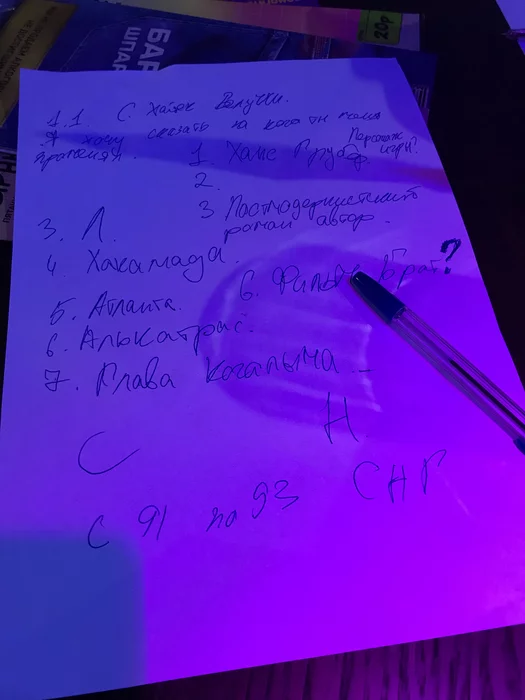 20р
БАР
ШПАР
1.1. С. Хайек Белуччи.
Я хочу сказать на кого он меня
променял.
Персонаж
игры?
1. Ханс Грубер.
2.
3 Постмодернистский
роман автор.
3. Л.
4. Хакамада.
5. Атланта.
6. Фильм Брат?
6. Алькатрас.
7. Глава Когалыма
С
Н
С 91 по 93 СНГ